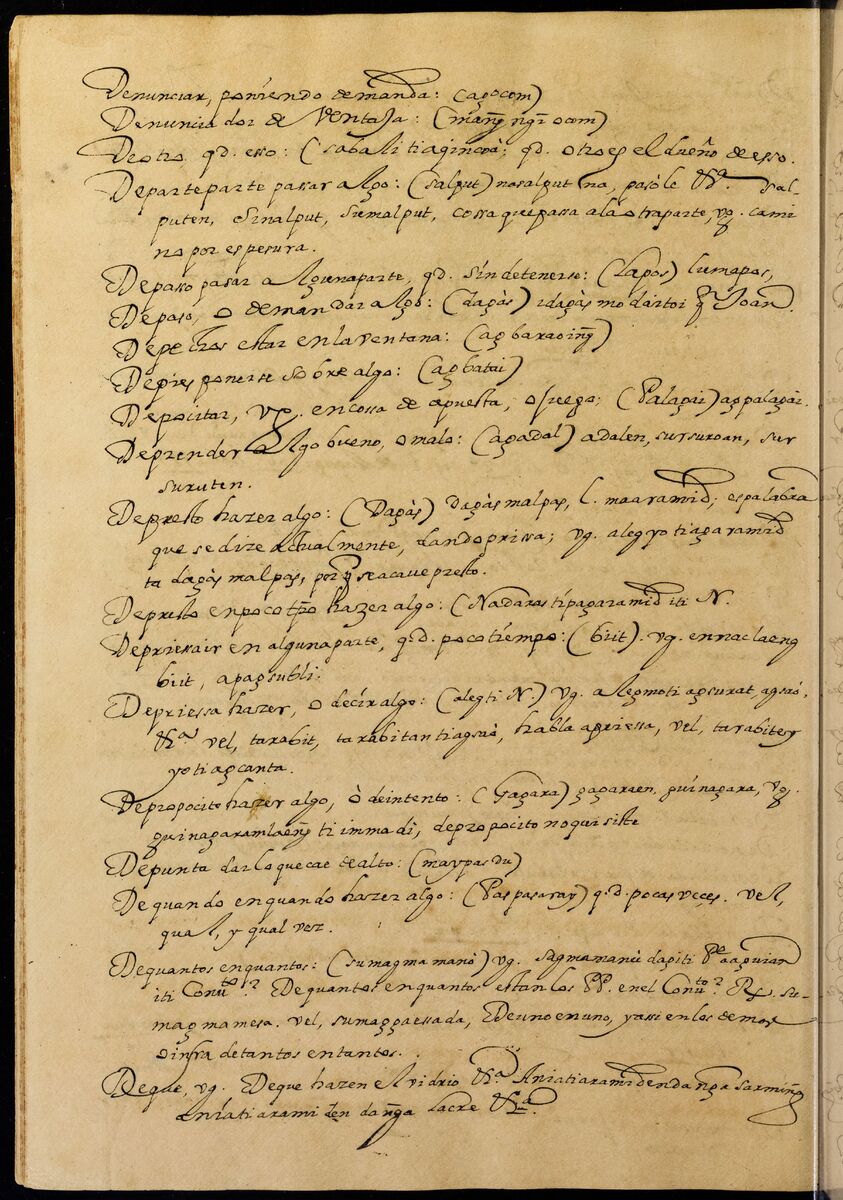 Denunciar, poniendo demanda: (agocom)
Denunciador de ventaja: (mang̃ng̃i ocom)
De otro. qd. esso: (sabali tiagincoà: qd. otro es el dueño de esso.
De parte parte pasar algo: (salput) nasalput na, pasòle &ª. sal-
puten, sinalput, sumalput, cossa que passa ala otra parte, vg. cami
no por espesura.
De paso pasar a alguna parte, qd. sin detenerse: (Lapos) lumapos,
De paso, o demandar algo: (dagàs) idagàs mo daitoi qr Joan.
De pechos estar en la ventana: (agbaraoing̃)
De pies ponerse sobre algo: (agbatai)
Depocitar, vg. en cossa de apuesta, o juego: (Palagai) agpalagai.
Deprender algo bueno, o malo: (agadal) adalen, sursuroan, sur
suruten.
De presto hazer algo: (Dagàs) dagàs malpas, l. maaramid; es palabra
que se dize actualmente, dando prissa; vg. alegyo tiagaramid
ta dagàs malpas, porq̃ se acave presto.
De presto en poco tp̃o hazer algo: (Nadaras tipagaramid iti N.
De priesa ir en alguna parte, q.d. poco tiempo: (biit). vg. ennaclaeng
biit, apagsubli.
De priessa hazer, o decir algo: (alegti N.) vg. alegmoti agsurat, agsaò,
&ª vel, tarabit, tarabitantiagsaò, habla apriessa, vel, tarabitey
yotiagcanta.
De propocito hazer algo, ò de intento: (Gagàra) gagaraen, guinagara, vg.
guinagaramlaeng̃ ti immadì, de propocito no quisiste
De punta dar lo que cae de alto: (maypasdu)
De quando en quando hazer algo: (Paspasaray) q.d. pocas veçes. vel,
qual, y qual vez.
De quantos en quantos: (sumagmamanò) vg. sagmamanù dagiti Pe aaguian
iti Convto? De quantos en quantos estan los PP. en el Convto? Rx. su-
magmamesa. vel, sumaggaessada, De uno en uno, y assi en los demas
o infra de tantos en tantos.
De que, vg. De que hazen el vidrio &ª Aniatiaramidendang̃a sarming̃
aniatiaramiden dang̃a lacre &ª.